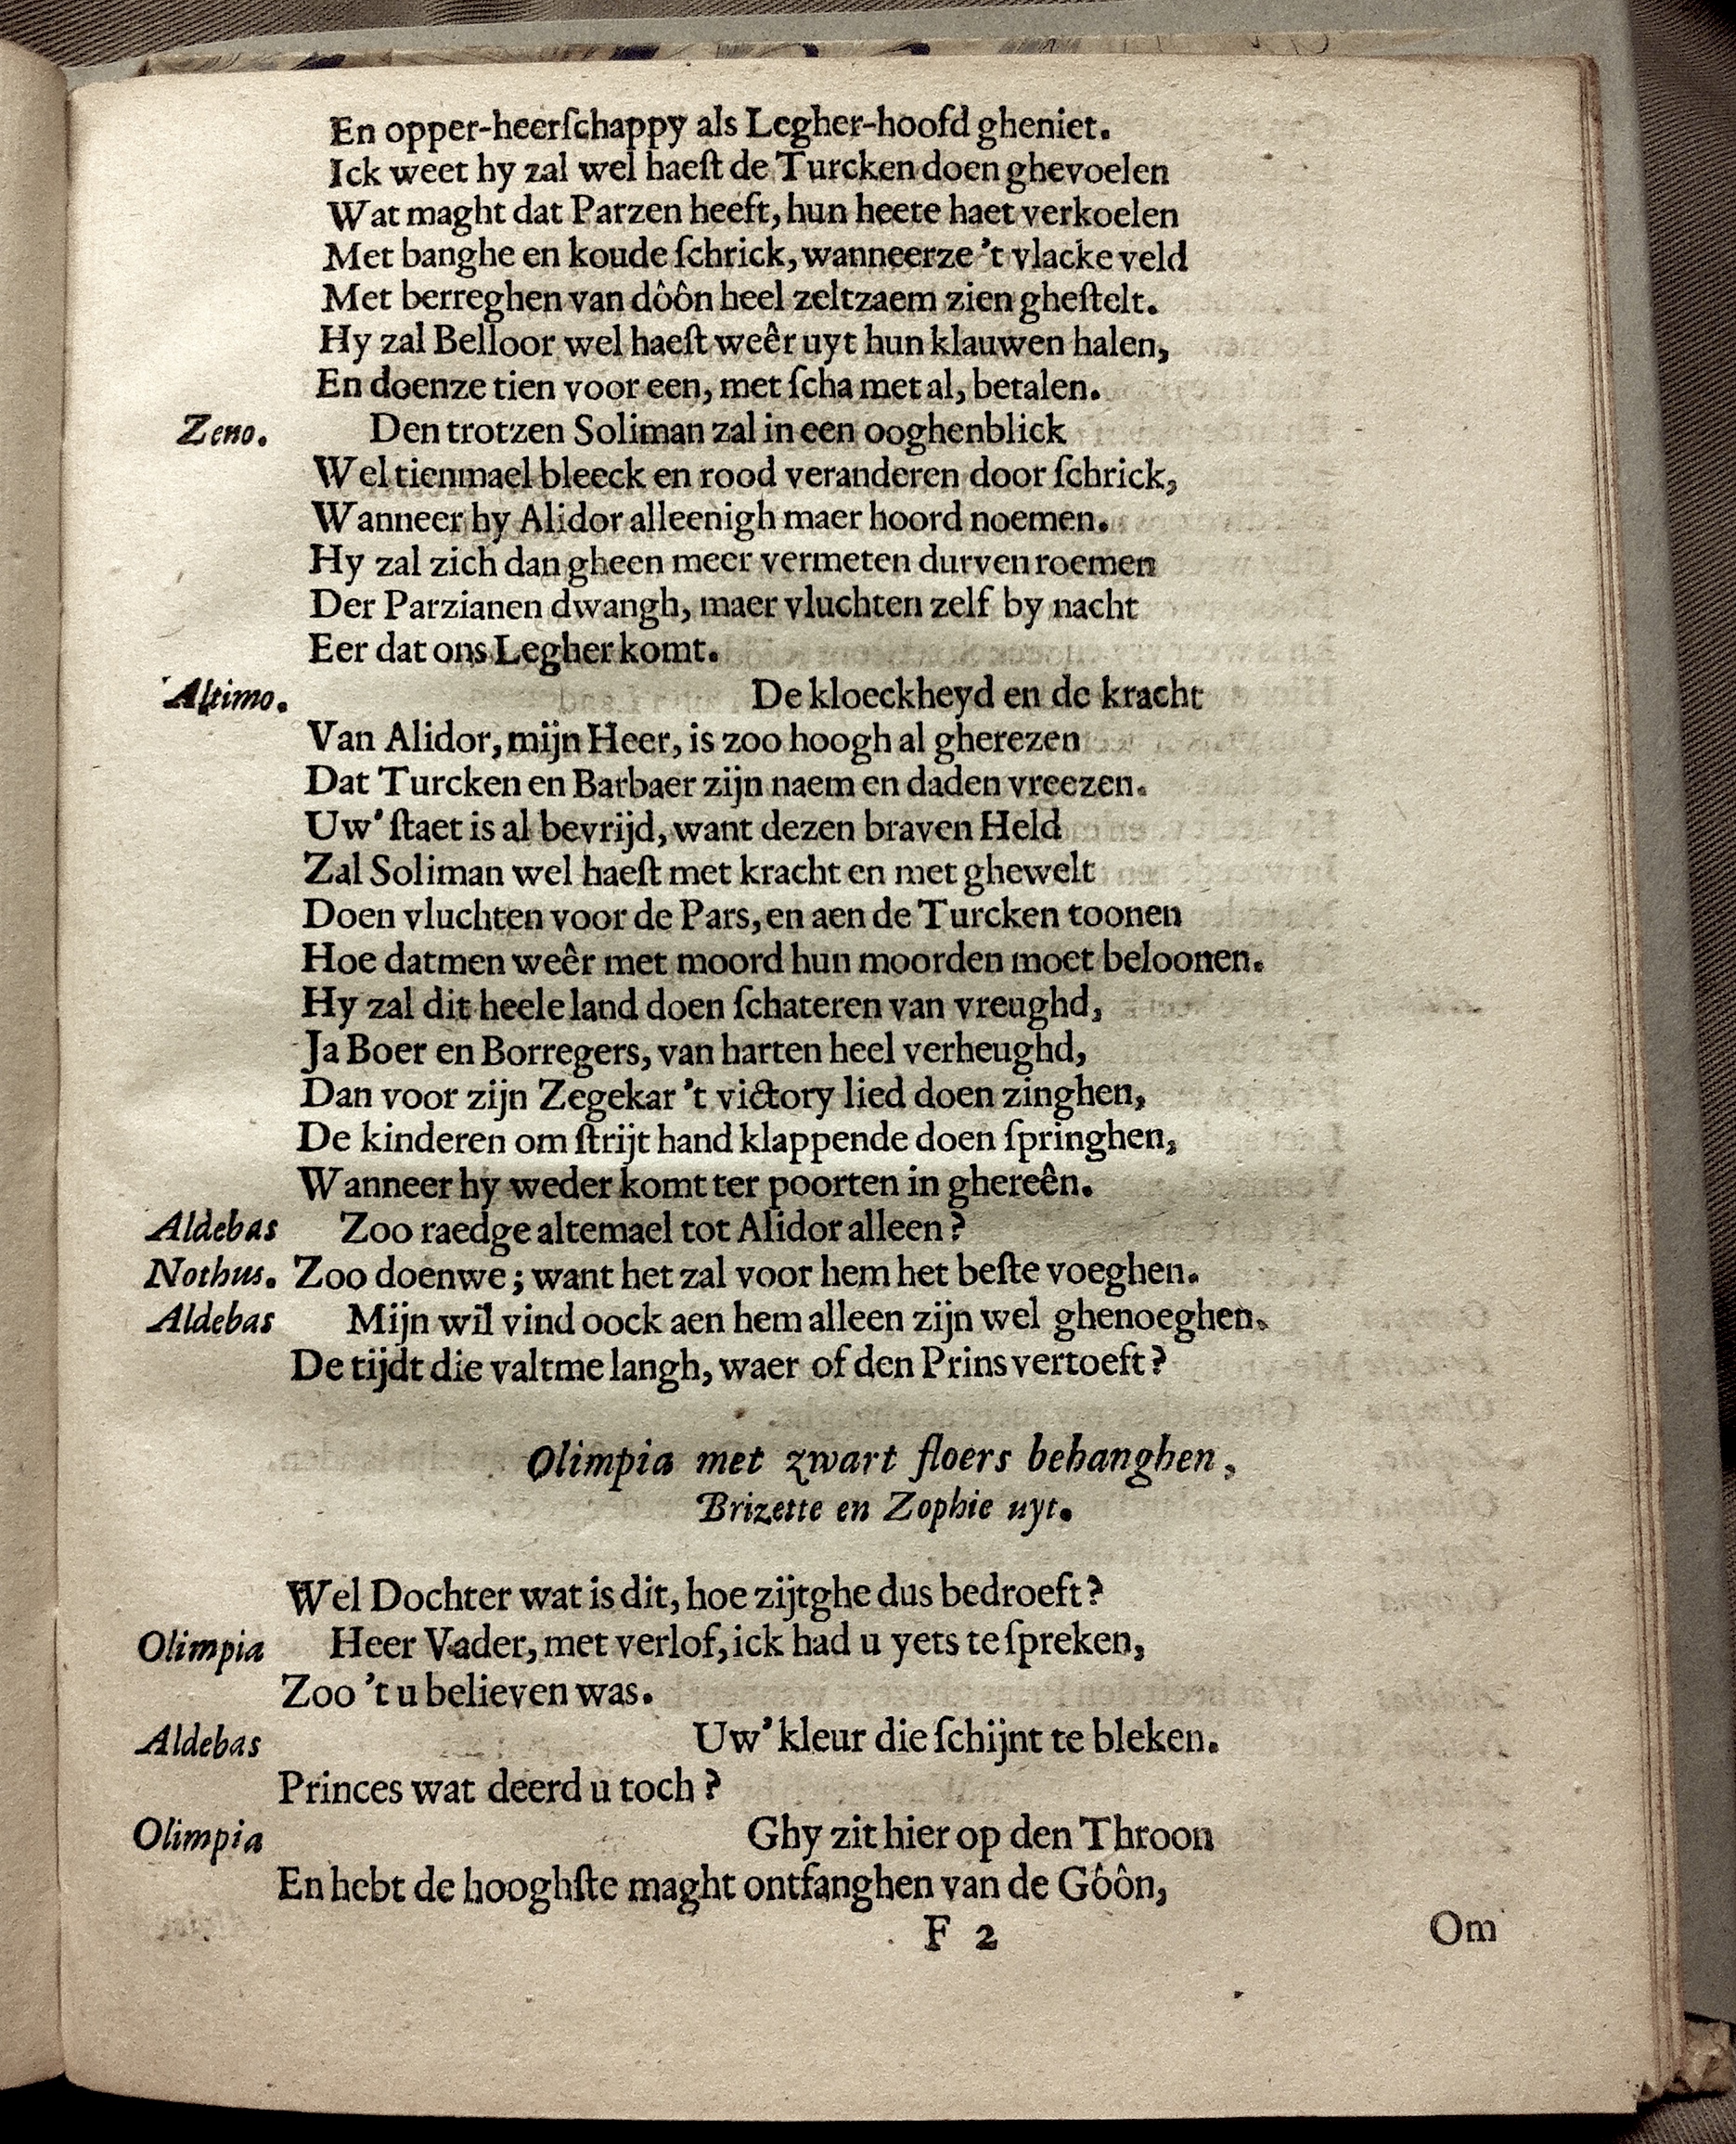 En opper-heerſchappy als Legher-hoofd gheniet.
Ick weet hy zal wel haeſt de Turcken doen ghevoelen
Wat maght dat Parzen heeft, hun heete haet verkoelen
Met banghe en koude ſchrick, wanneerze 't vlacke veld
Met berreghen van dôôn heel zeltzaem zien gheſtelt.
Hy zal Belloor wel haeſt weêr uyt hun klauwen halen,
En doenze tien voor een, met ſcha met al, betalen.
Zeno. Den trotzen Soliman zal in een ooghenblick
Wel tienmael bleeck en rood veranderen door ſchrick,
Wanneer hy Alidor alleenigh maer hoord noemen.
Hy zal zich dan gheen meer vermeten durven roemen
Der Parzianen dwangh, maer vluchten zelf by nacht
Eer dat ons Legher komt.
Altimo. De kloeckheyd en de kracht
Van Alidor, mijn Heer, is zoo hoogh al gherezen
Dat Turcken en Barbaer zijn naem en daden vreezen.
Uw' ſtaet is al bevrijd, want dezen braven Held
Zal Soliman wel haeſt met kracht en met ghewelt
Doen vluchten voor de Pars, en aen de Turcken toonen
Hoe datmen weêr met moord hun moorden moet beloonen.
Hy zal dit heele land doen ſchateren van vreughd,
Ja Boer en Borregers, van harten heel verheughd,
Dan voor zijn Zegekar 't victory lied doen zinghen,
De kinderen om ſtrijt hand klappende doen ſpringhen,
Wanneer hy weder komt ter poorten in ghereên.
Aldebas Zoo raedge altemael tot Alidor alleen?
Nothus. Zoo doenwe; want het zal voor hem het beſte voeghen.
Aldebas Mijn wil vind oock aen hem alleen zijn wel ghenoeghen.
De tijdt die valtme langh, waer of den Prins vertoeft?
Olimpia met zwart floers behanghen,
Brizette en Zophie uyt.
Wel Dochter wat is dit, hoe zijtghe dus bedroeft?
Olimpia Heer Vader, met verlof, ick had u yets te ſpreken,
Zoo 't u believen was.
Aldebas Uw' kleur die ſchijnt te bleken.
Princes wat deerd u toch?
Olimpia Ghy zit hier op den Throon
En hebt de hooghſte maght ontfanghen van de Gôôn,
F 2 Om